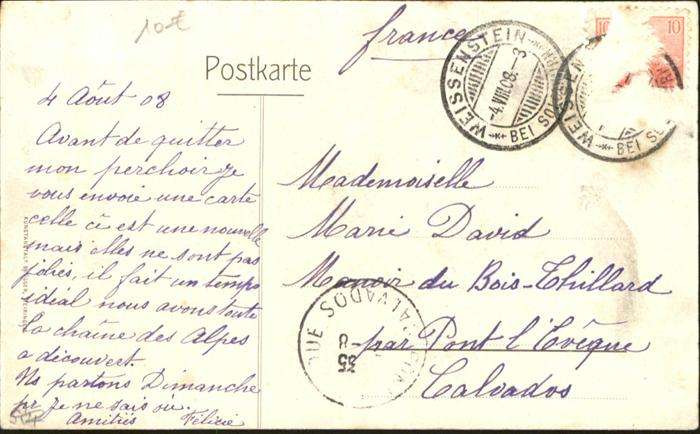 10€
France
Postkarte
WEISSENSTEIN
-4.VIII.08.-3
BEI SO
10
10
WEISSEN
BEI SO
4 Août 08
Avant de quitter
mon perchoir je
vous envoie une carte
celle ci est une nouvelle
mais elles ne sont pas
jolies, il fait un temps
idéal nous avons toute
la chaîne des Alpes
a découvert.
Ns partons Dimanche
pr je ne sais où.
Amitiés Félicie
Mademoiselle
Marie David
Manoir du Bois-Thillard
par Pont l'Evêque
Calvados
CALVADOS
QUE